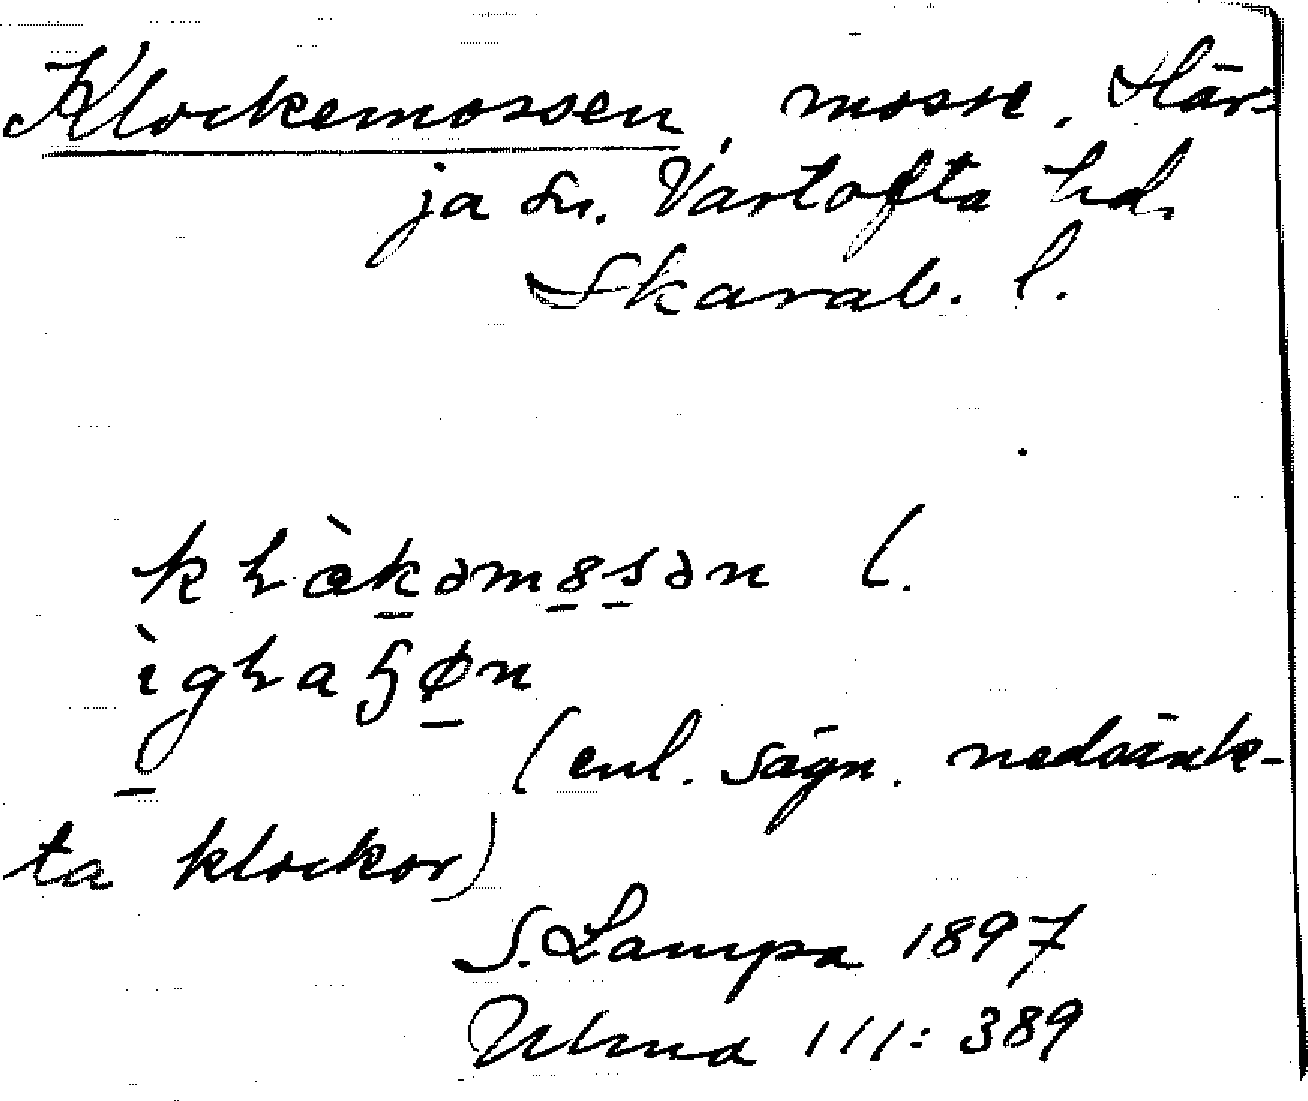 Klockemossen, mosse. Här-
ja sn. Vartofta hd.
Skarab. l.
(.
(enl. sägn. nedsänk-
ta klockor)
S. Lampa 1897
Ulma 111: 389